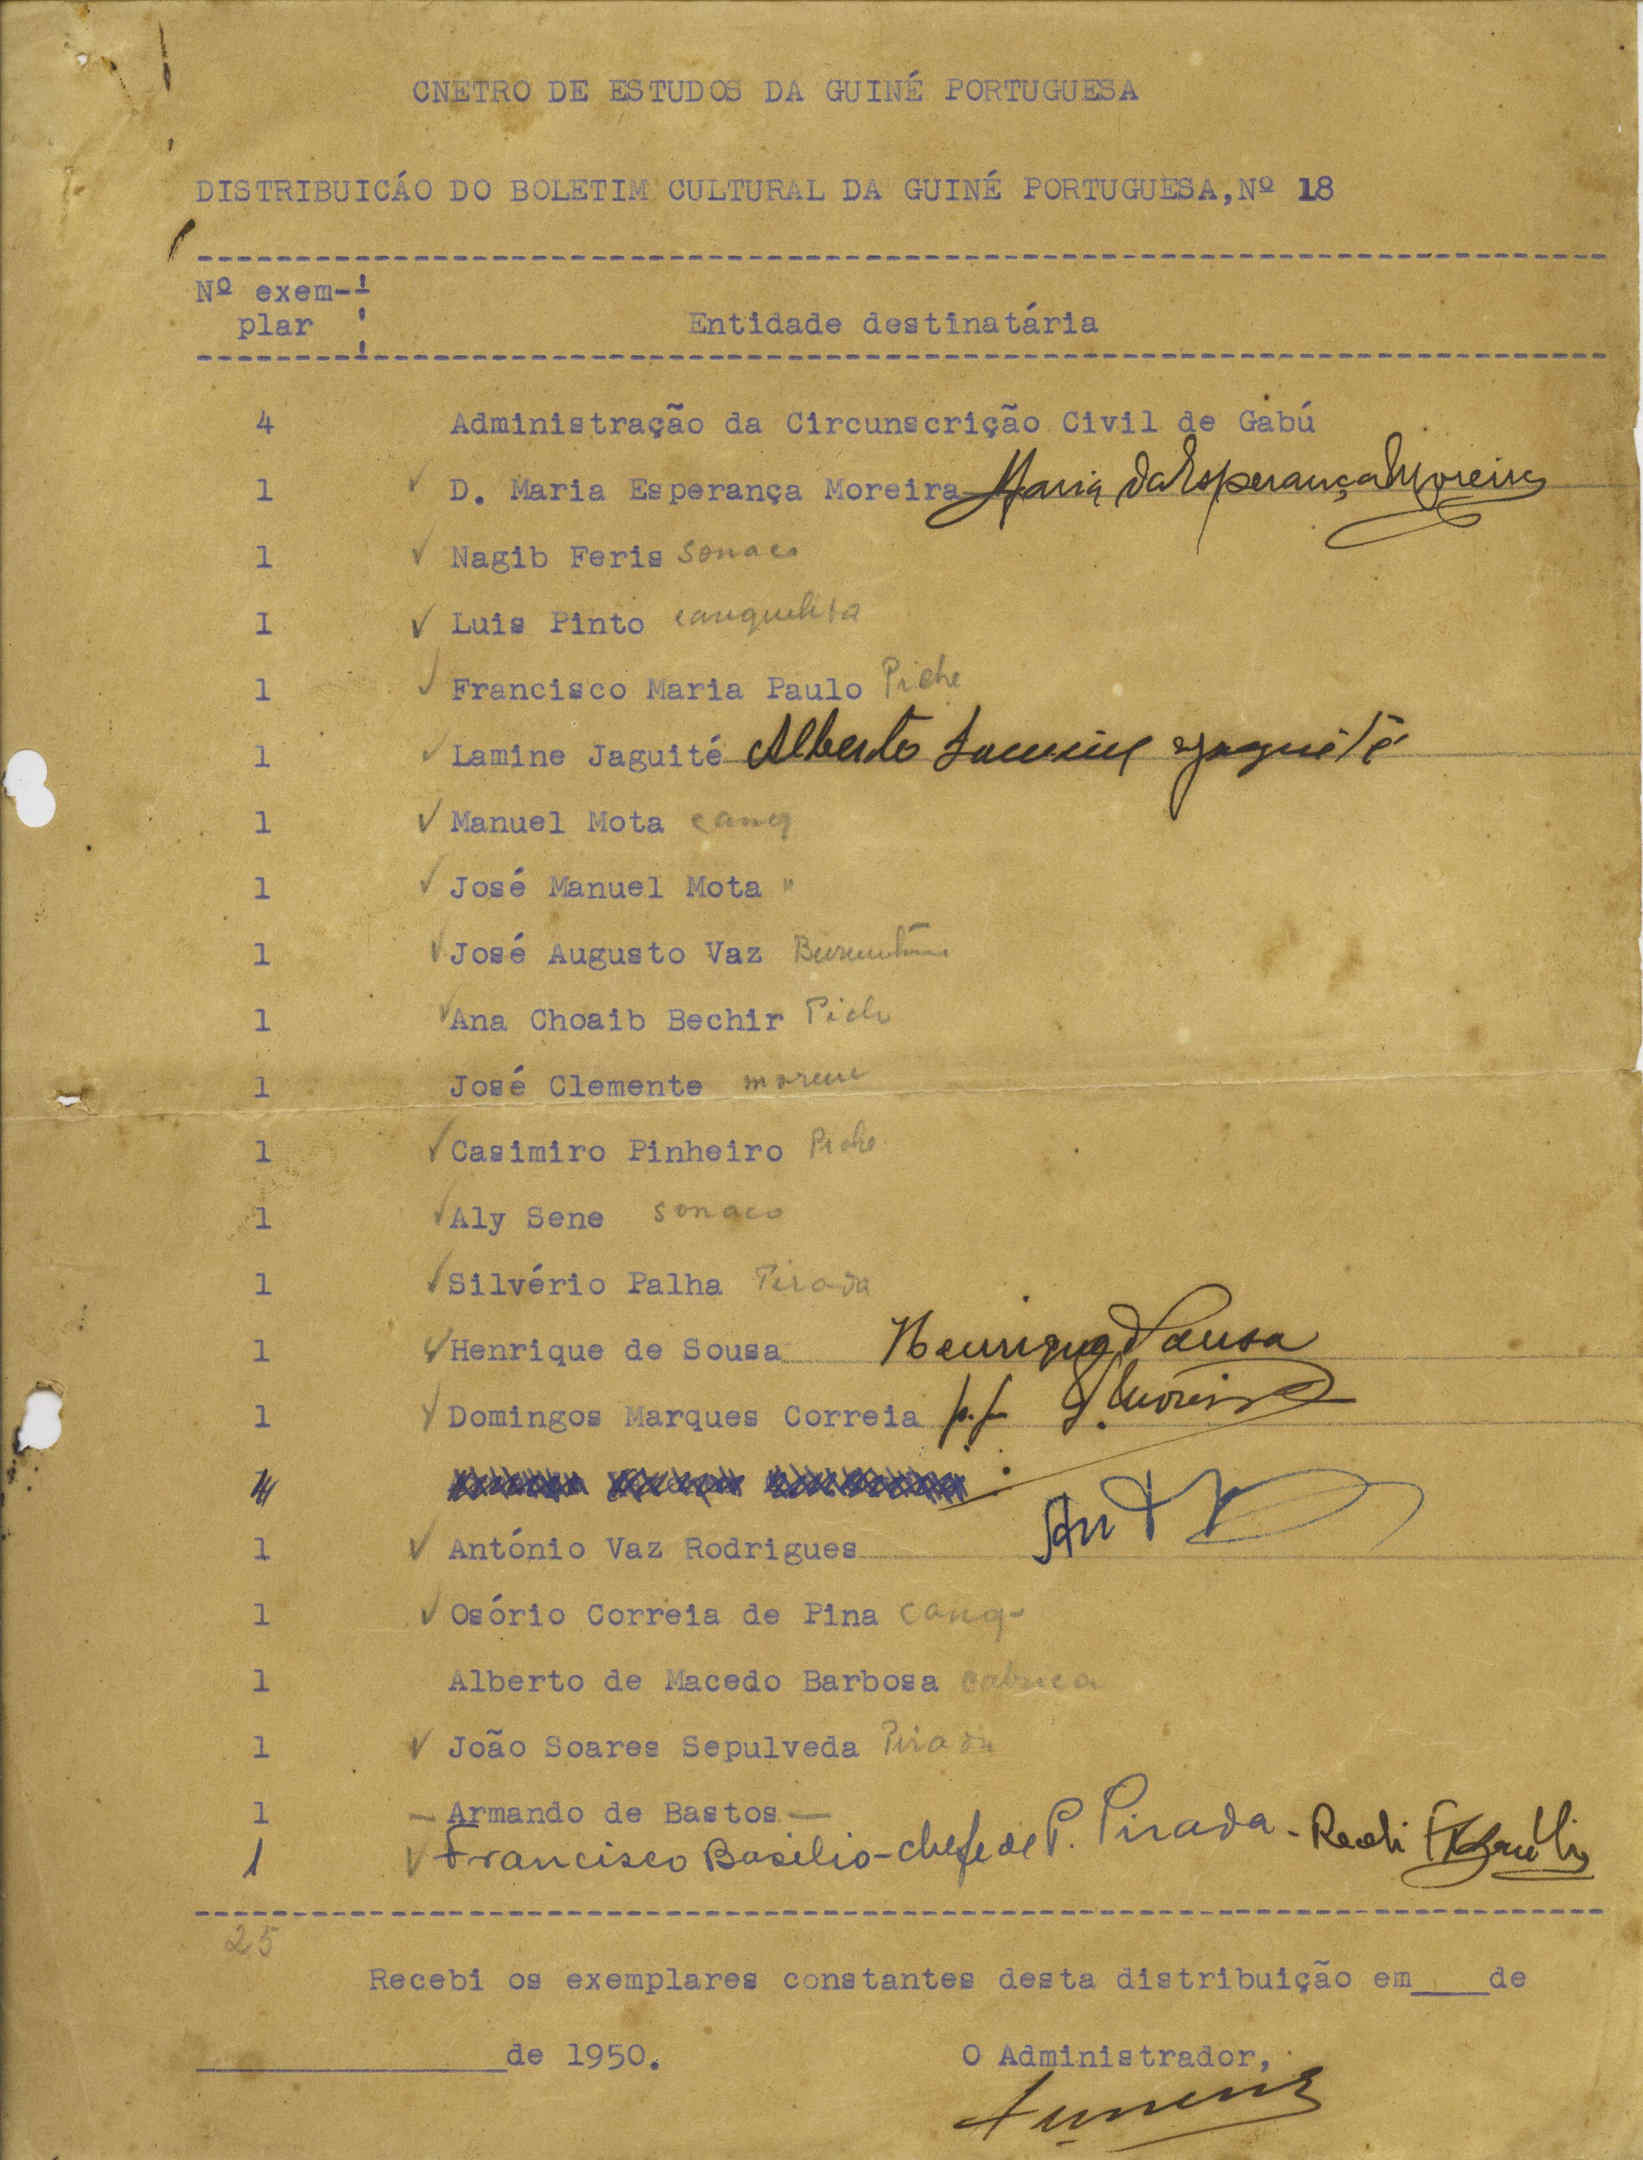 CNETRO DE ESTUDOS DA GUINÉ PORTUGUESA
DISTRIBUICÁO DO BOLETIM CULTURAL DA GUINÉ PORTUGUESA, Nº 18
Nº exem-
plar
Entidade destinatária
4 Administração da Circunscrição Civil de Gabú
1 D. Maria Esperança Moreira Maria da Esperança Moreira
1 Nagib Feris Sonaco
I Luis Pinto
1 Francisco Maria Paulo Piche
1 Lamine Jaguité Alberto Lamine Jaguité
1 Manuel Mota canq
1 José Manuel Mota "
1 José Augusto Vaz
1 Ana Choaib Bechir Piche
1 José Clemente
1 Casimiro Pinheiro Piche
1 Aly Sene sonaco
1 Silvério Palha Pirada
1 Henrique de Sousa Henrique d Sousa
1 Domingos Marques Correia p.p.
1 António Vaz Rodrigues
1 Osório Correia de Pina canq-
1 Alberto de Macedo Barbosa cabuca
1 João Soares Sepulveda Pirada
1 — Armando de Bastos —
1 Francisco Basilio - chefe de P. Pirada - Recebi
25
Recebi os exemplares constantes desta distribuição em____de
________________de 1950. O Administrador,